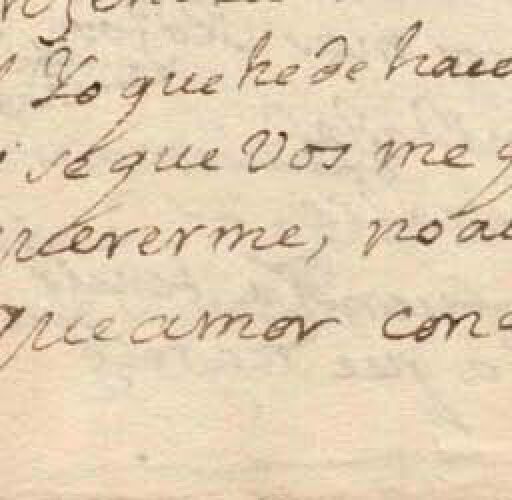 Yo que he de hace
se que Vos me q
ecererme, no au
que amor con